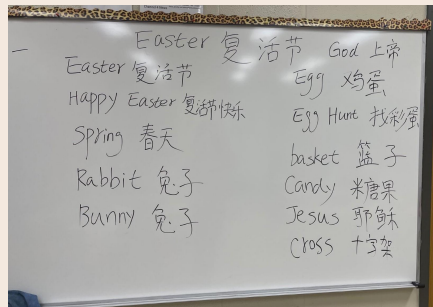 Easter 复活节
Easter 复活节
Happy Easter 复活节快乐
Spring 春天
Rabbit 兔子
Bunny 兔子
God 上帝
Egg 鸡蛋
Egg Hunt 找彩蛋
basket 篮子
Candy 糖果
Jesus 耶稣
Cross 十字架